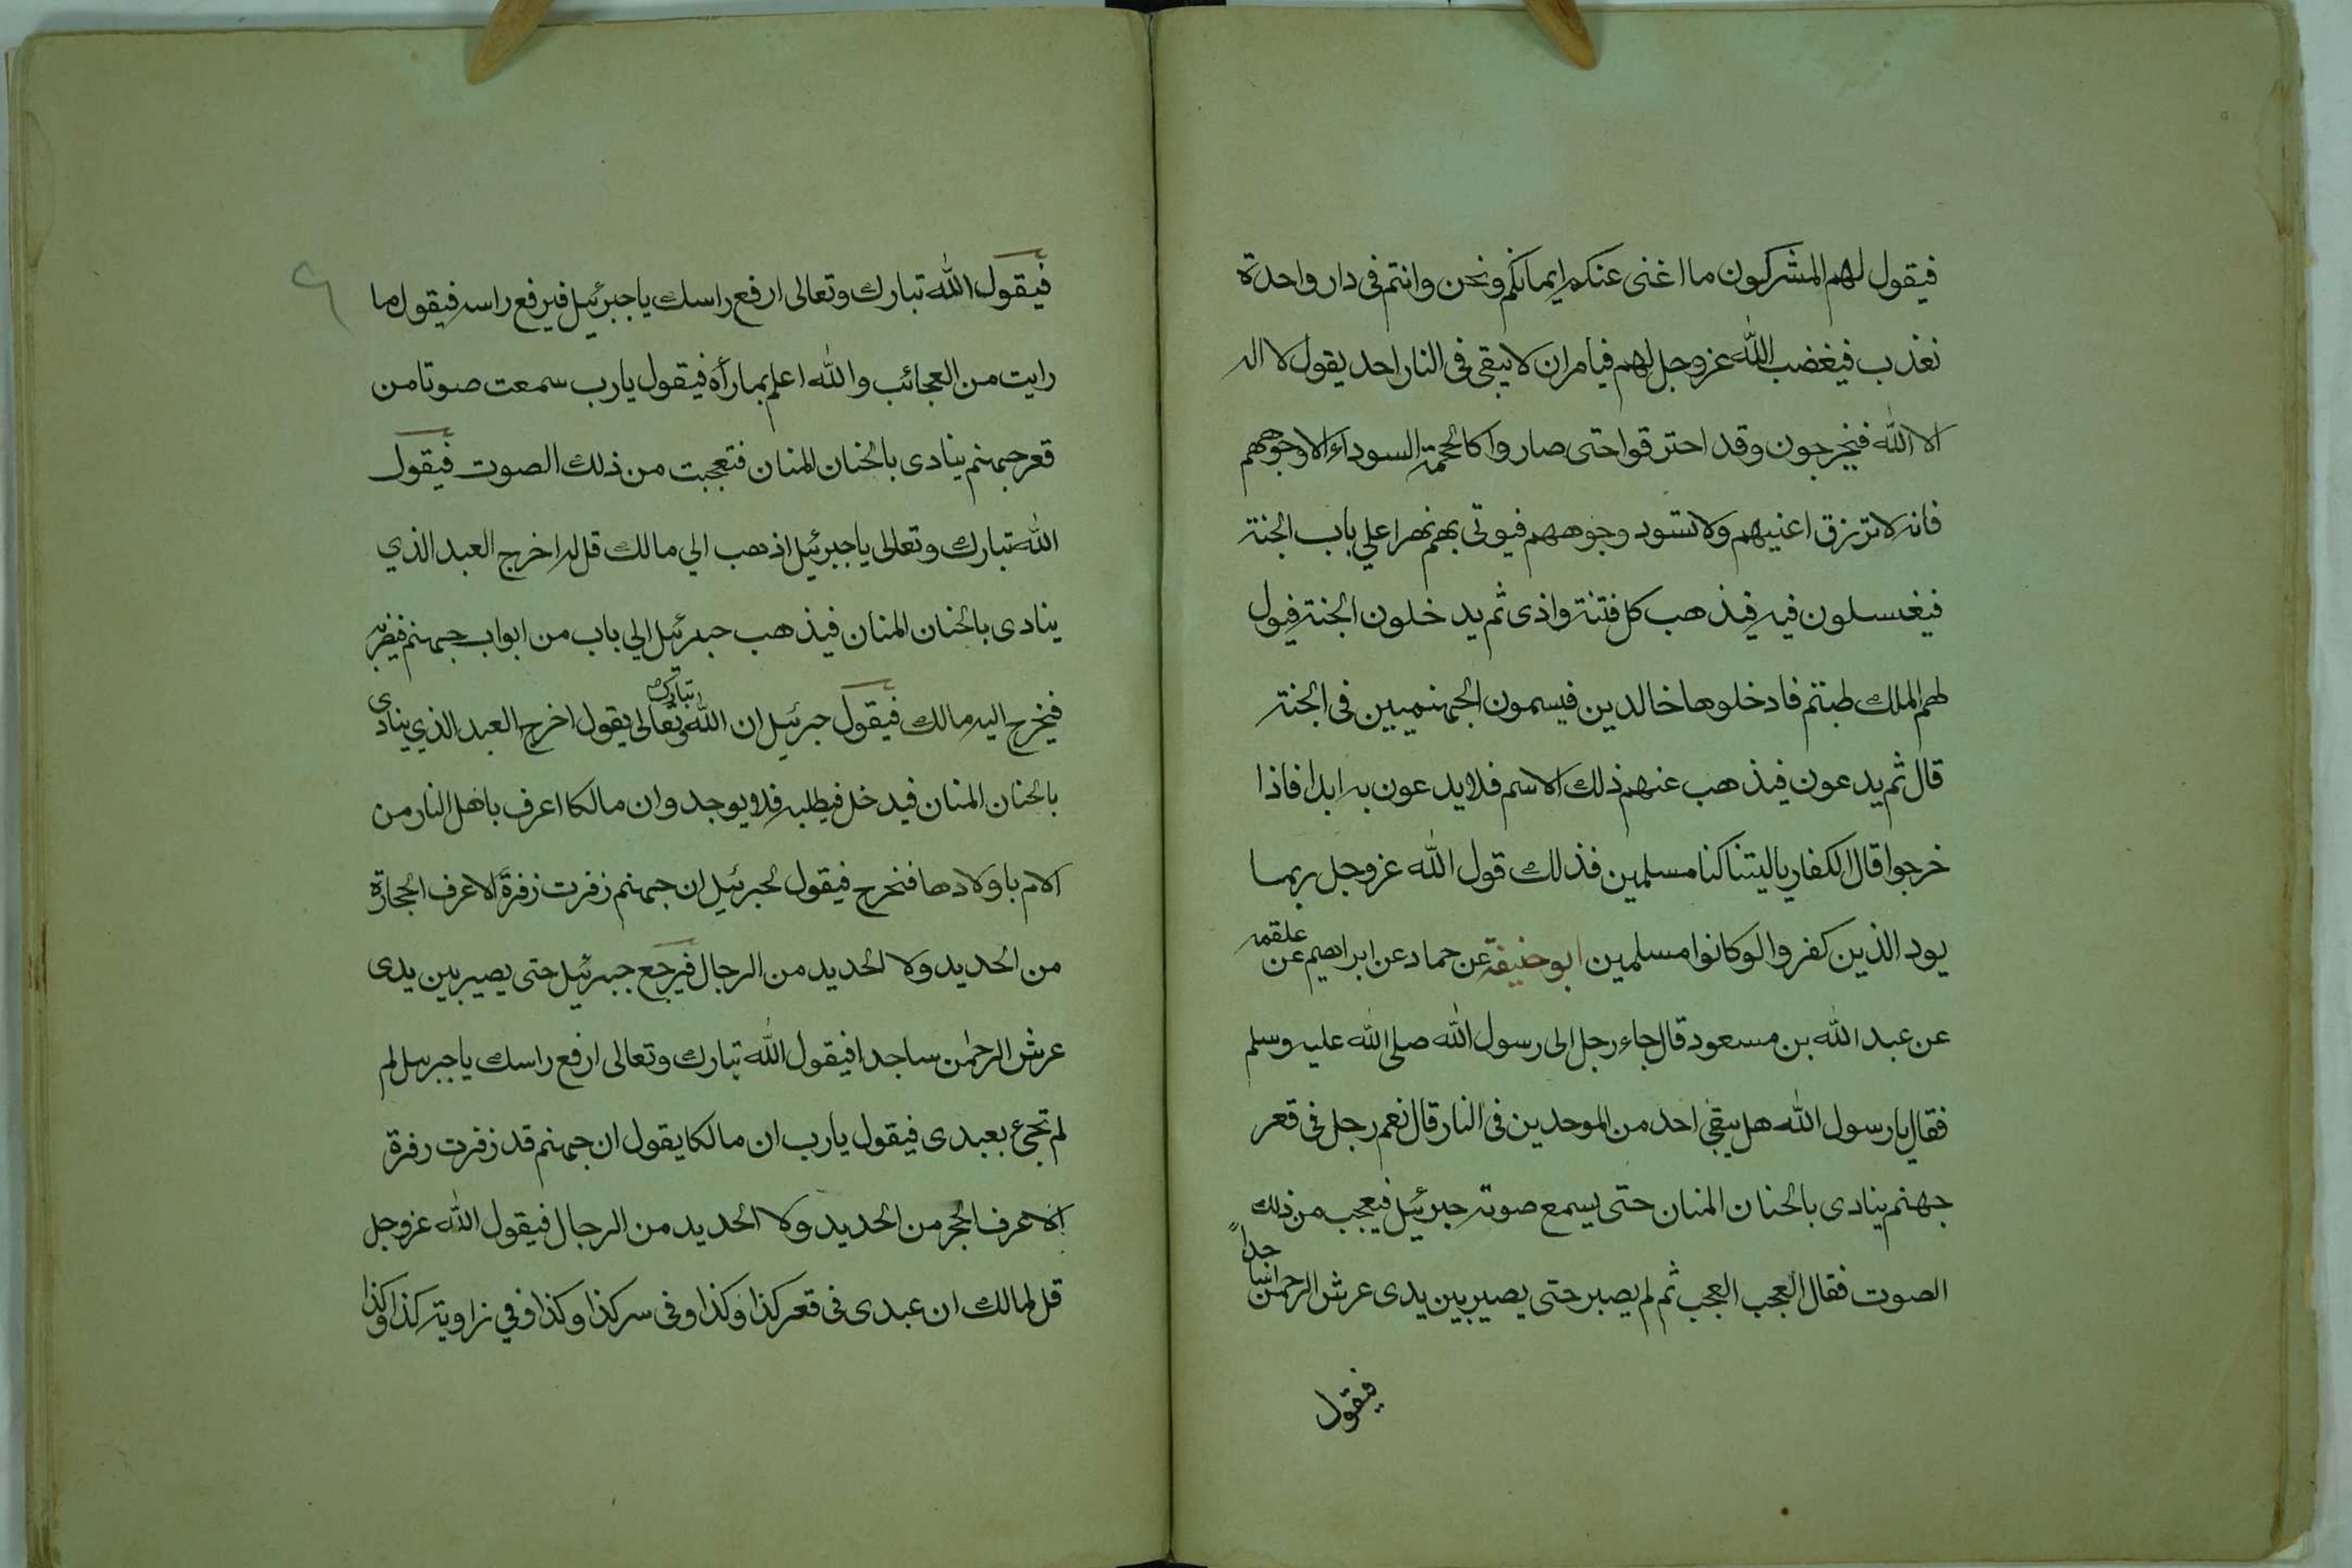 فيقول لهم المشركون ما اغنى عنكم ايمانكم ونحن وانتم فى دار واحدة
نعذب فيغضب الله عزوجل لهم فيامر ان لا يبقى فى النار احد يقول لا اله
الا الله فيخرجون وقد احترقوا حتى صاروا كالحممة السوداء الا وجوههم
فانه لا تزرق اعنيهم ولا تسود وجوههم فيوتى بهم نهرا علي باب الجنة
فيغسلون فيه فيذهب كل فتنة واذى ثم يدخلون الجنة فيول
لهم الملك طبتم فادخلوها خالدين فيسمون الجهنميين فى الجنة
قال ثم يدعون فيذهب عنهم ذلك الاسم فلا يدعون به ابدا فاذا
خرجوا قال الكفار ياليتنا كنا مسلمين فذلك قول الله عزوجل ربما
يود الذين كفروا لوكانوا مسلمين ابو حنيفة عن حماد عن ابراهيم عن علقمة
عن عبد الله بن مسعود قال جاء رجل الى رسول الله صلى الله عليه وسلم
فقال يا رسول الله هل يبقى احد من الموحدين فى النار قال نعم رجل فى قعر
جهنم ينادى بالحنان المنان حتى يسمع صوته جبرئيل فيعجب من ذلك
الصوت فقال العجب العجب ثم لم يصبر حتى يصير بين يدى عرش الرحمن ساجداً
فيقول
٦
فيقول الله تبارك وتعالى ارفع راسك يا جبرئيل فيرفع راسه فيقول ما
رايت من العجائب والله اعلم بما رأه فيقول يارب سمعت صوتا من
قعر جهنم ينادى بالحنان المنان فتعجبت من ذلك الصوت فيقول
الله تبارك وتعالى يا جبرئيل اذهب الي مالك قل له اخرج العبد الذي
ينادى بالحنان المنان فيذهب جبرئيل الي باب من ابواب جهنم فيضربه
فيخرج اليه مالك فيقول جبرئيل ان الله تبارك وتعالى يقول اخرج العبد الذي ينادى
بالحنان المنان فيدخل فيطلبه فلا يوجد وان مالكا اعرف باهل النار من
الام باولادها فتخرج فيقول لجبرئيل ان جهنم زفرت زفرة لا اعرف الحجارة
من الحديد ولا الحديد من الرجال فيرجع جبرئيل حتى يصير بين يدى
عرش الرحمن ساجدا فيقول الله تبارك وتعالى ارفع راسك يا جبرىيل لم
لم تجئ بعبدى فيقول يارب ان مالكا يقول ان جهنم قد زفرت رفرة
لا اعرف الحجر من الحديد ولا الحديد من الرجال فيقول الله عزوجل
قل لمالك ان عبدى فى قعر كذا وكذا وفى سر كذا وكذا وفي زاوية كذا وكذا